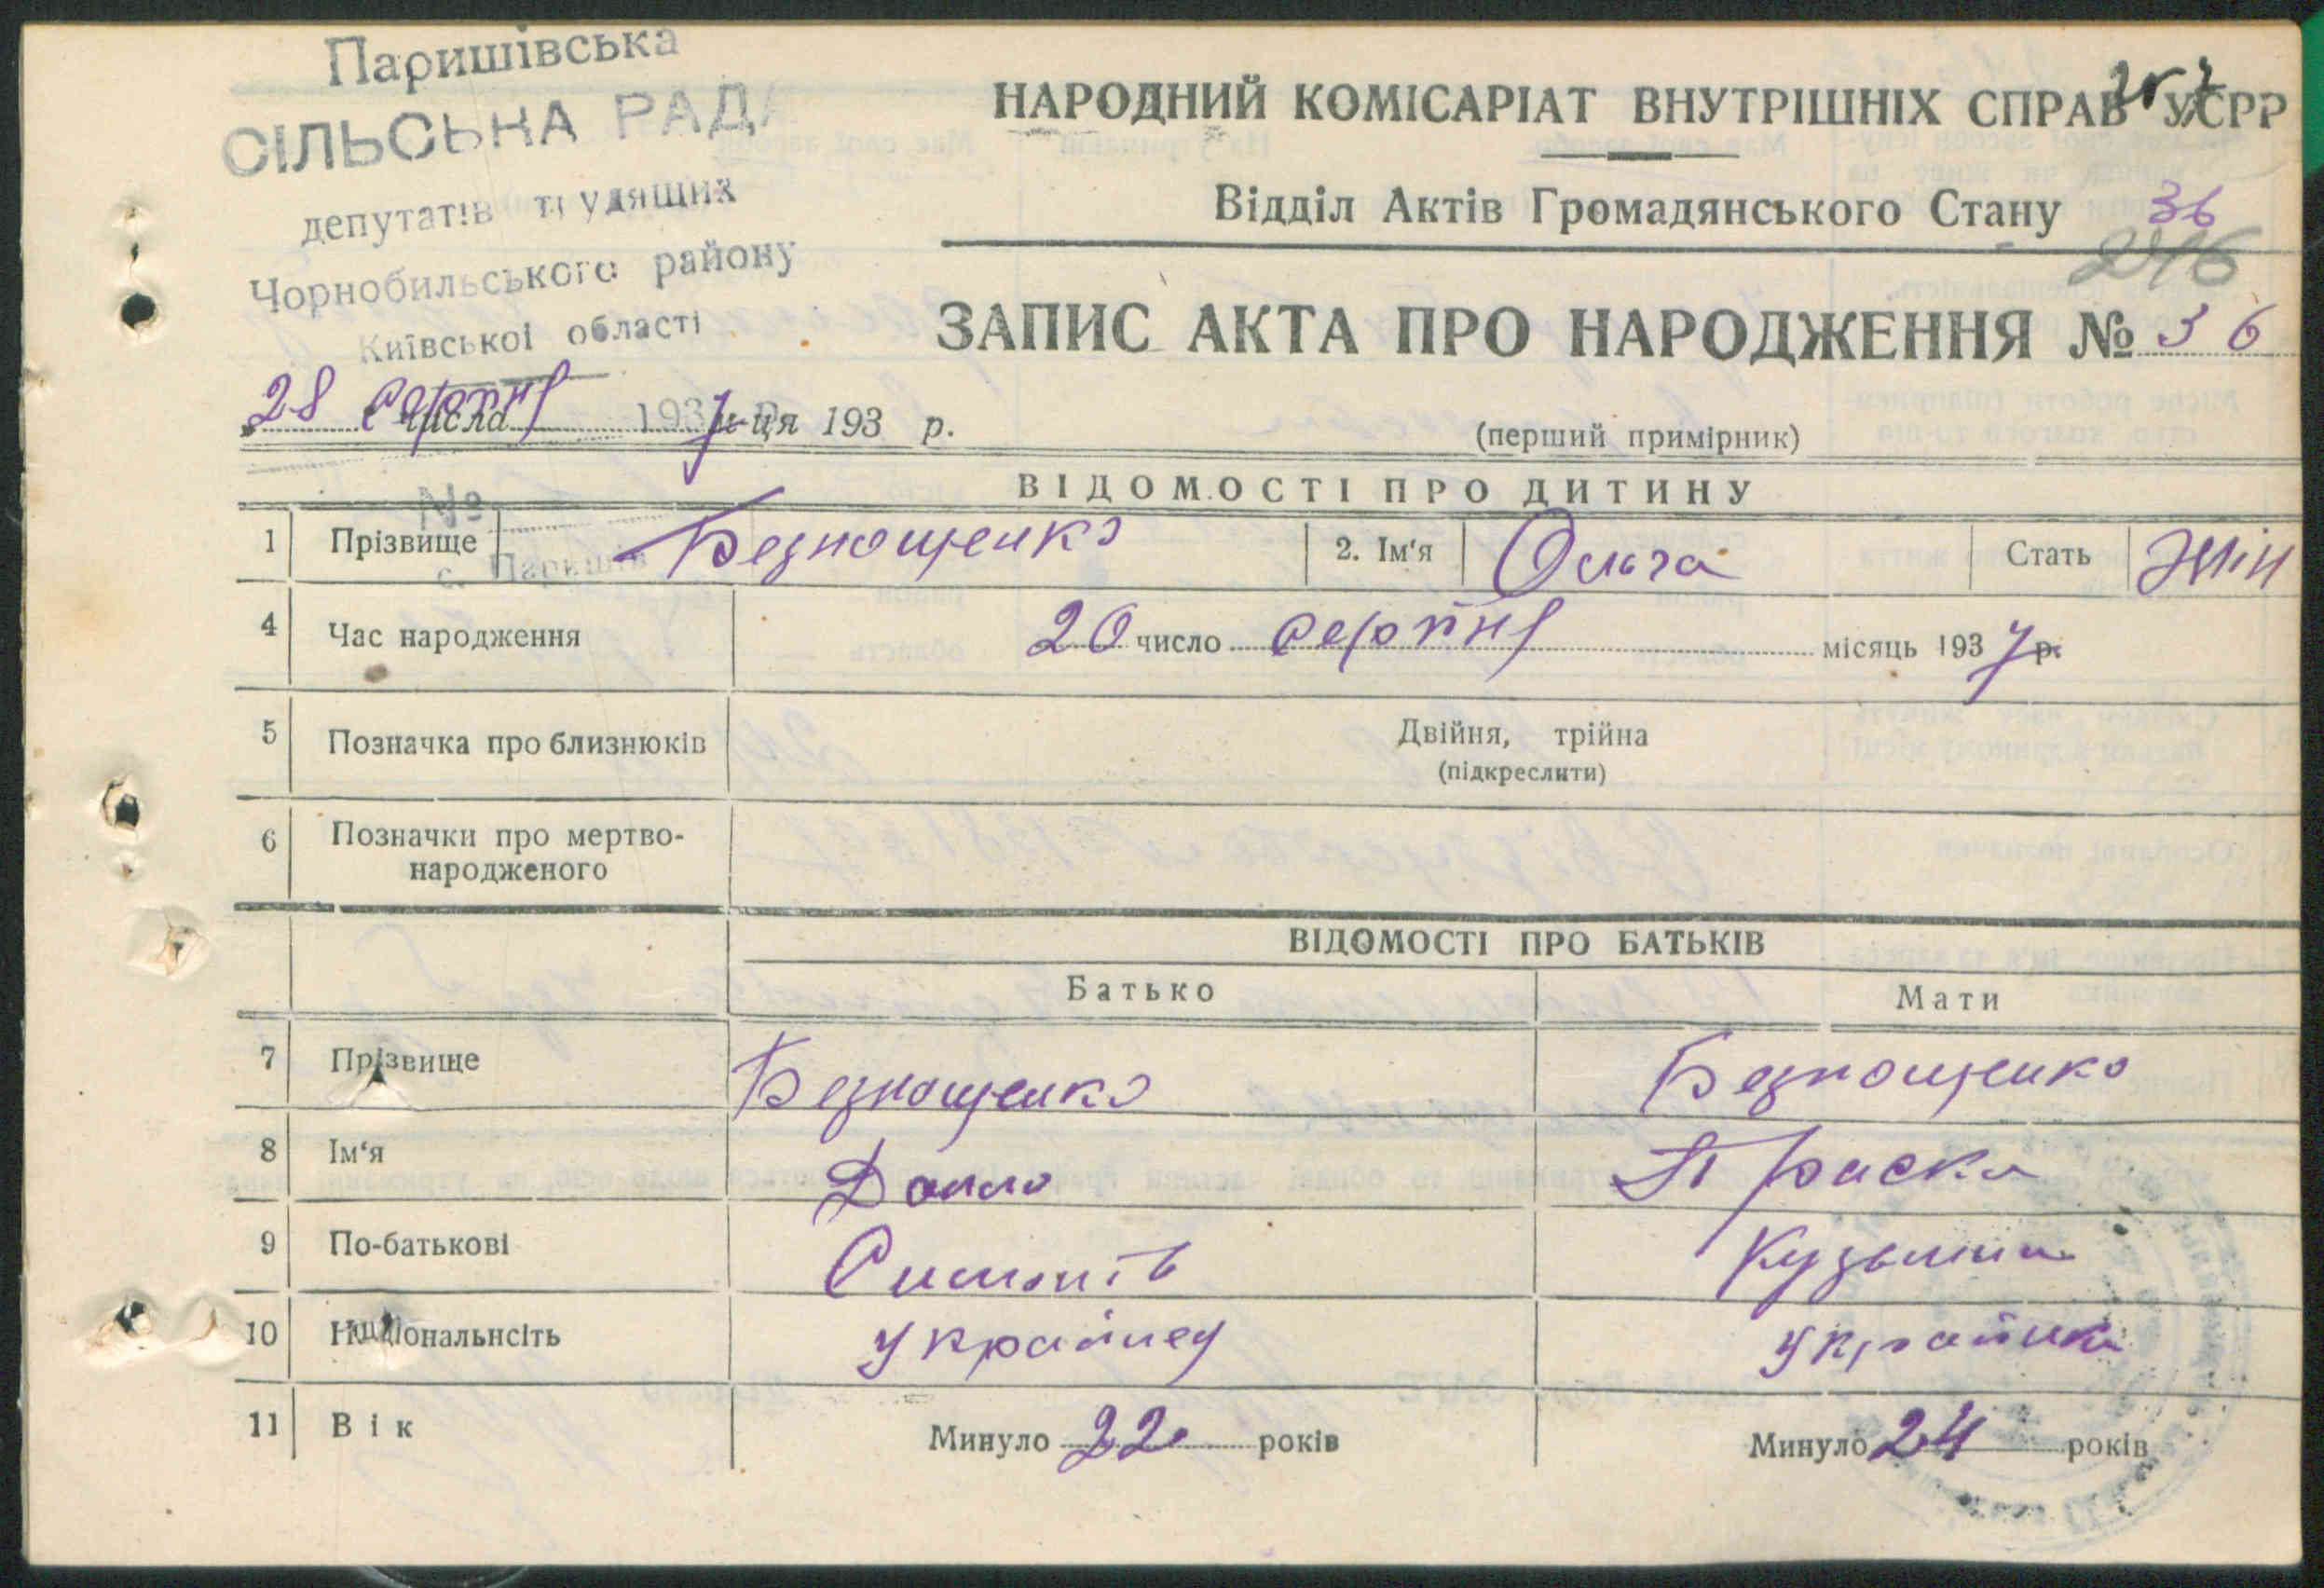 Паришівська
СІЛЬСЬКА РАДА
депутатів трудящих
Чорнобильського району
Київської області
НАРОДНИЙ КОМІСАРІАТ ВНУТРІШНІХ СПРАВ УСРР
Відділ Актів Громадянського Стану 36
246
ЗАПИС АКТА ПРО НАРОДЖЕННЯ № 36
28 серпня числа 1937 м-ця 193 р.
(перший примірник)
№
с. Паришів
ВІДОМОСТІ ПРО ДИТИНУ
1 Прізвище Безнощенко 2. Ім‘я Ольга Стать Жін
4 Час народження 20 число серпня місяць 1937 р.
5 Позначка про близнюків Двійня, трійна
(підкреслити)
6 Позначки про мертво-
народженого
ВІДОМОСТІ ПРО БАТЬКІВ
Батько Мати
7 Прізвище Безнощенко Безнощенко
8 Ім‘я Параска
9 По-батькові Кузьмин
10 Національнсіть Українец Українка
11 Вік Минуло 22 років Минуло 24 років